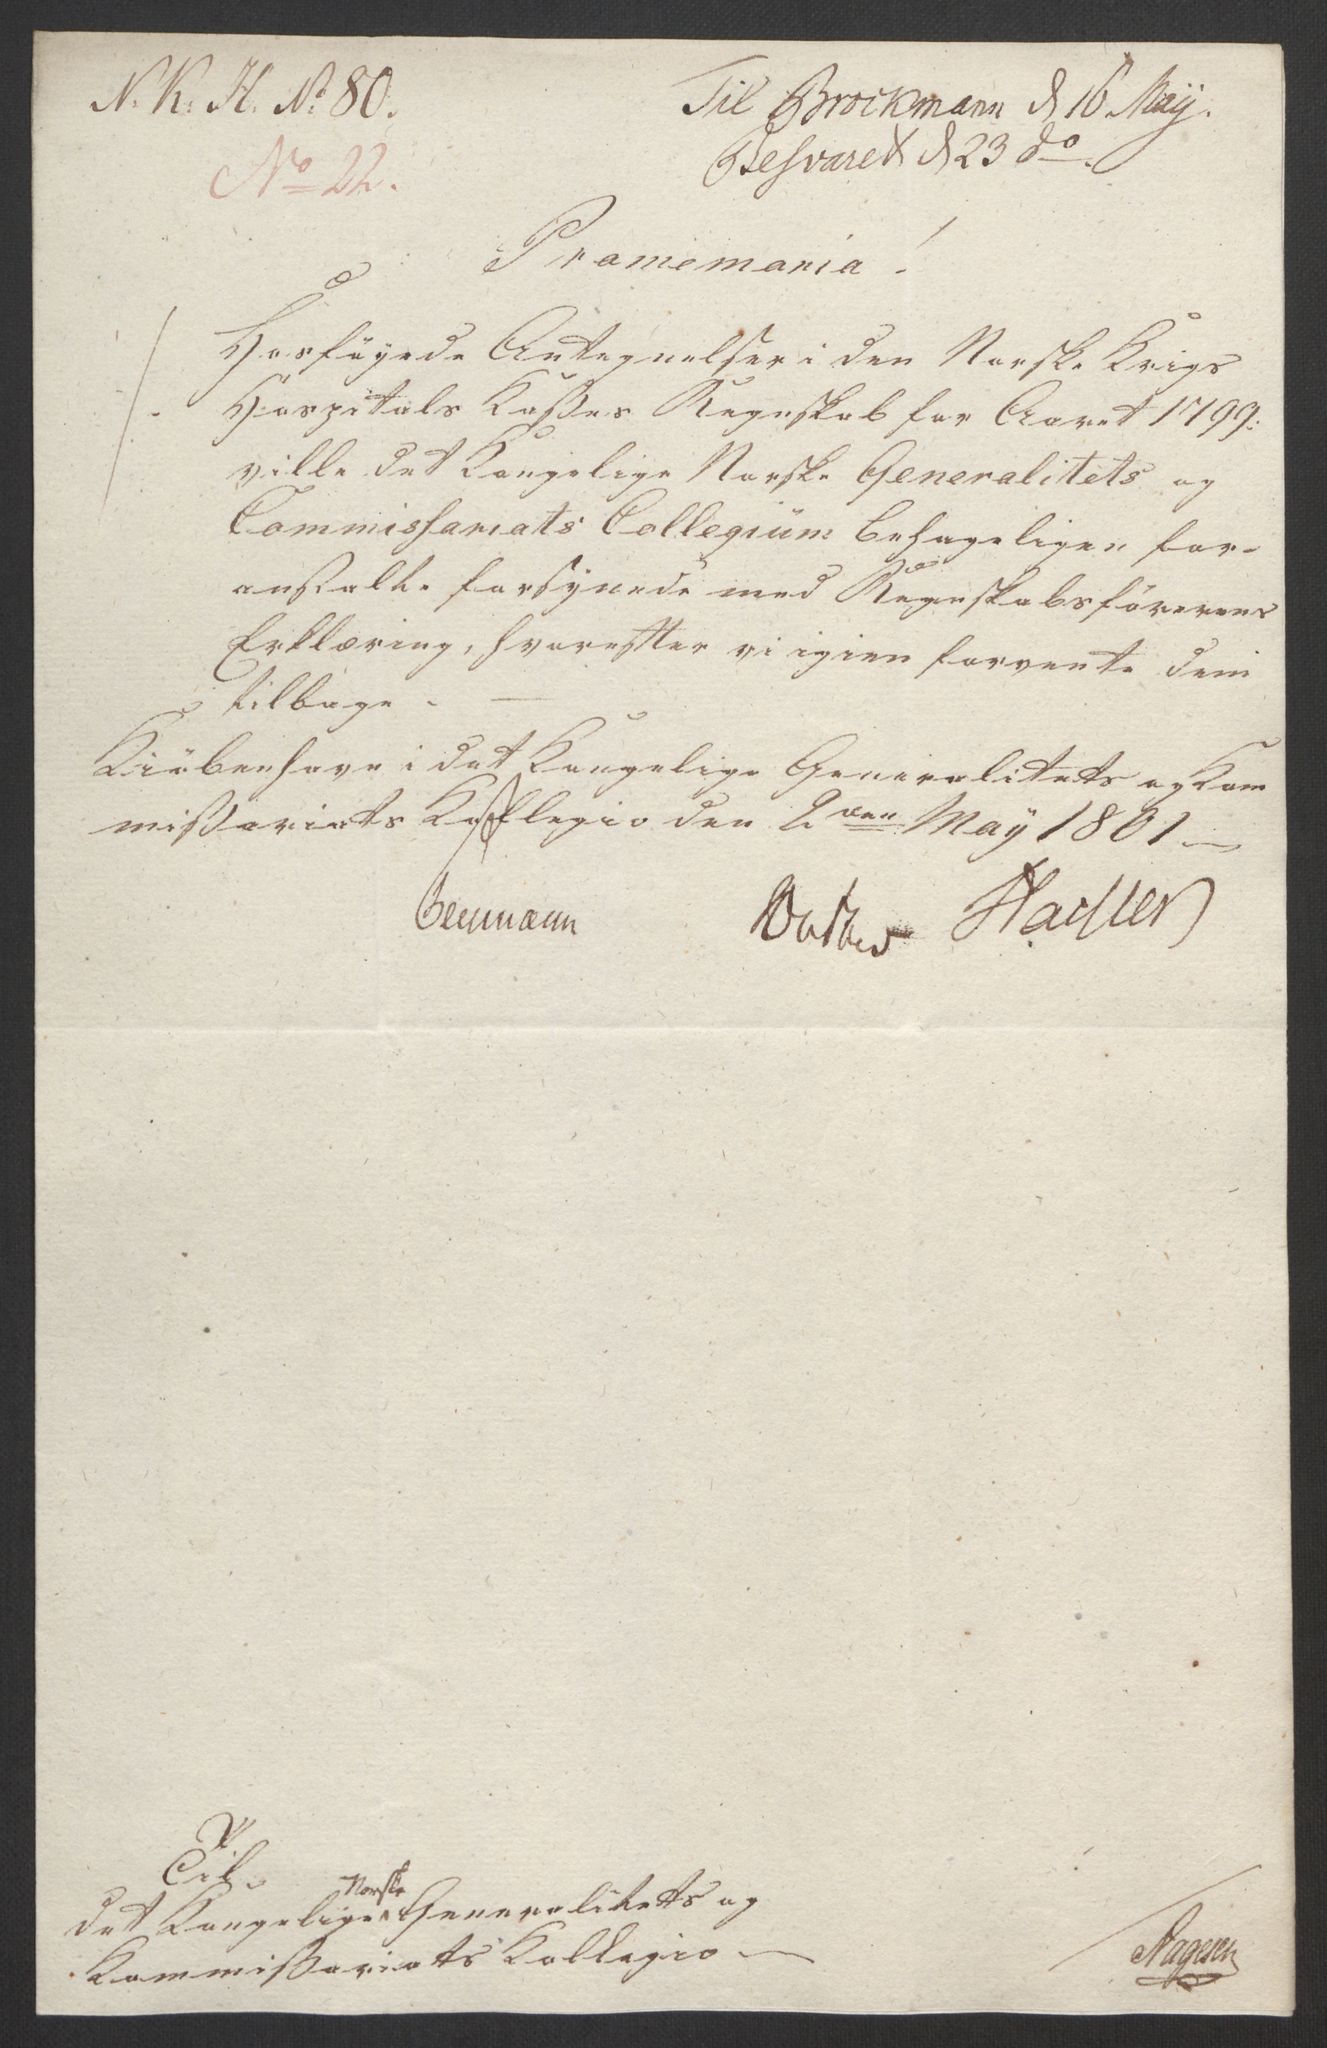 N. K. H. No 80.
No 22.
Til Brockmann d 16 Maÿ.
Besvaret d 23 do.
Promemoria!
Hosföyede Antegnelser i den Norske Krigs
Hospitals Kasses Regnskab for Aaret 1799.
ville det Kongelige Norske Generalitets og
Commissariats Collegium behageligen for-
anstalte forsÿnede med Regnskabsförerens
Erklæring, hvorefter vi igien forvente dem
tilbage.
Kiöbenhavn i det Kongelige Generalitets og Kom
missariats Kollegio den 2den Maÿ 1801
Til
det Kongelige Norske Generalitets og
Kommissariats Kollegio